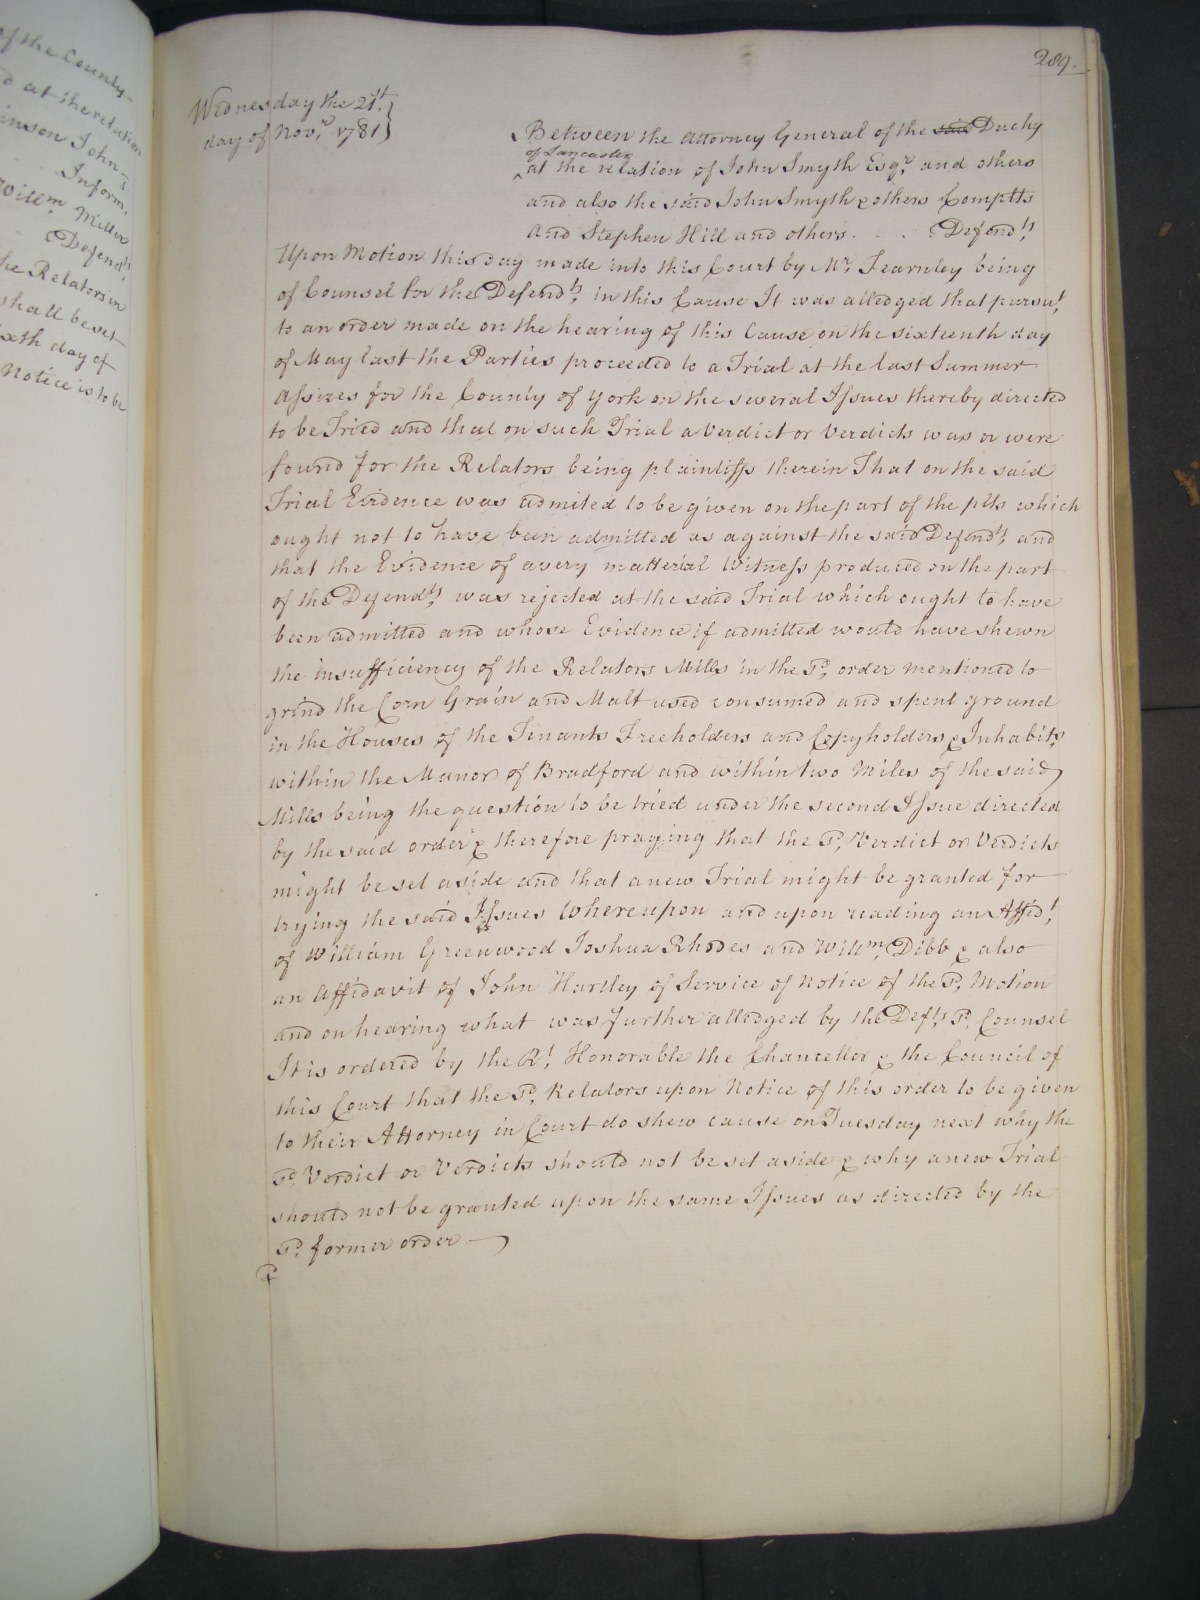 of the County
d at the relation
inson John
Inform.
Willm. Miller
Defendts
the Relators in
shall be set
ixth day of
Notice is to be
289.
Wednesday the 21st.
day of Novr. 1781
Between the Attorney General of the said Duchy
of Lancaster
at the relation of John Smyth Esqr. and others
and also the said John Smyth & others Complts
And Stephen Hill and others . . . Defendts,
Upon Motion this day made into this Court by Mr. Fearnley being
of Counsel for the Defendts, in this Cause It was alledged that pursut,
to an order made on the hearing of this Cause on the sixteenth day
of May last the Parties proceeded to a Trial at the last Summer
Assizes for the County of York on the several Issues thereby directed
to be Tried and that on such Trial a Verdict or Verdicts was or were
found for the Relators being plaintiffs therein That on the said
Trial Evidence was admited to be given on the part of the plts which
ought not to have been admitted as against the said Defendts, and
that the Evidence of a very matterial Witness produced on the part
of the Defendts, was rejected at the said Trial which ought to have
been admitted and whose Evidence if admitted would have shewn
the insufficiency of the Relators Mills in the sd. order mentioned to
grind the Corn Grain and Malt used consumed and spent ground
in the Houses of the Tenants Freeholders and Copyholders & Inhabits,
within the Manor of Bradford and within two Miles of the said
Mills being the question to be tried under the second Issue directed
by the said order & therefore praying that the sd. Verdict or Verdicts
might be set aside and that a new Trial might be granted for
trying the said Issues Whereupon and upon reading an Affidt,
of William Greenwood Joshua Rhodes and Willm. Dibb & also
an Affidavit of John Hartley of Service of Notice of the sd. Motion
and on hearing what was further alledged by the Defts, sd. Counsel
It is ordered by the Rt. Honorable the Chancellor & the Council of
this Court that the sd. Relators upon Notice of this order to be given
to their Attorney in Court do shew cause on Tuesday next why the
sd. Verdict or Verdicts should not be set aside & why a new Trial
should not be granted upon the same Issues as directed by the
sd. former order